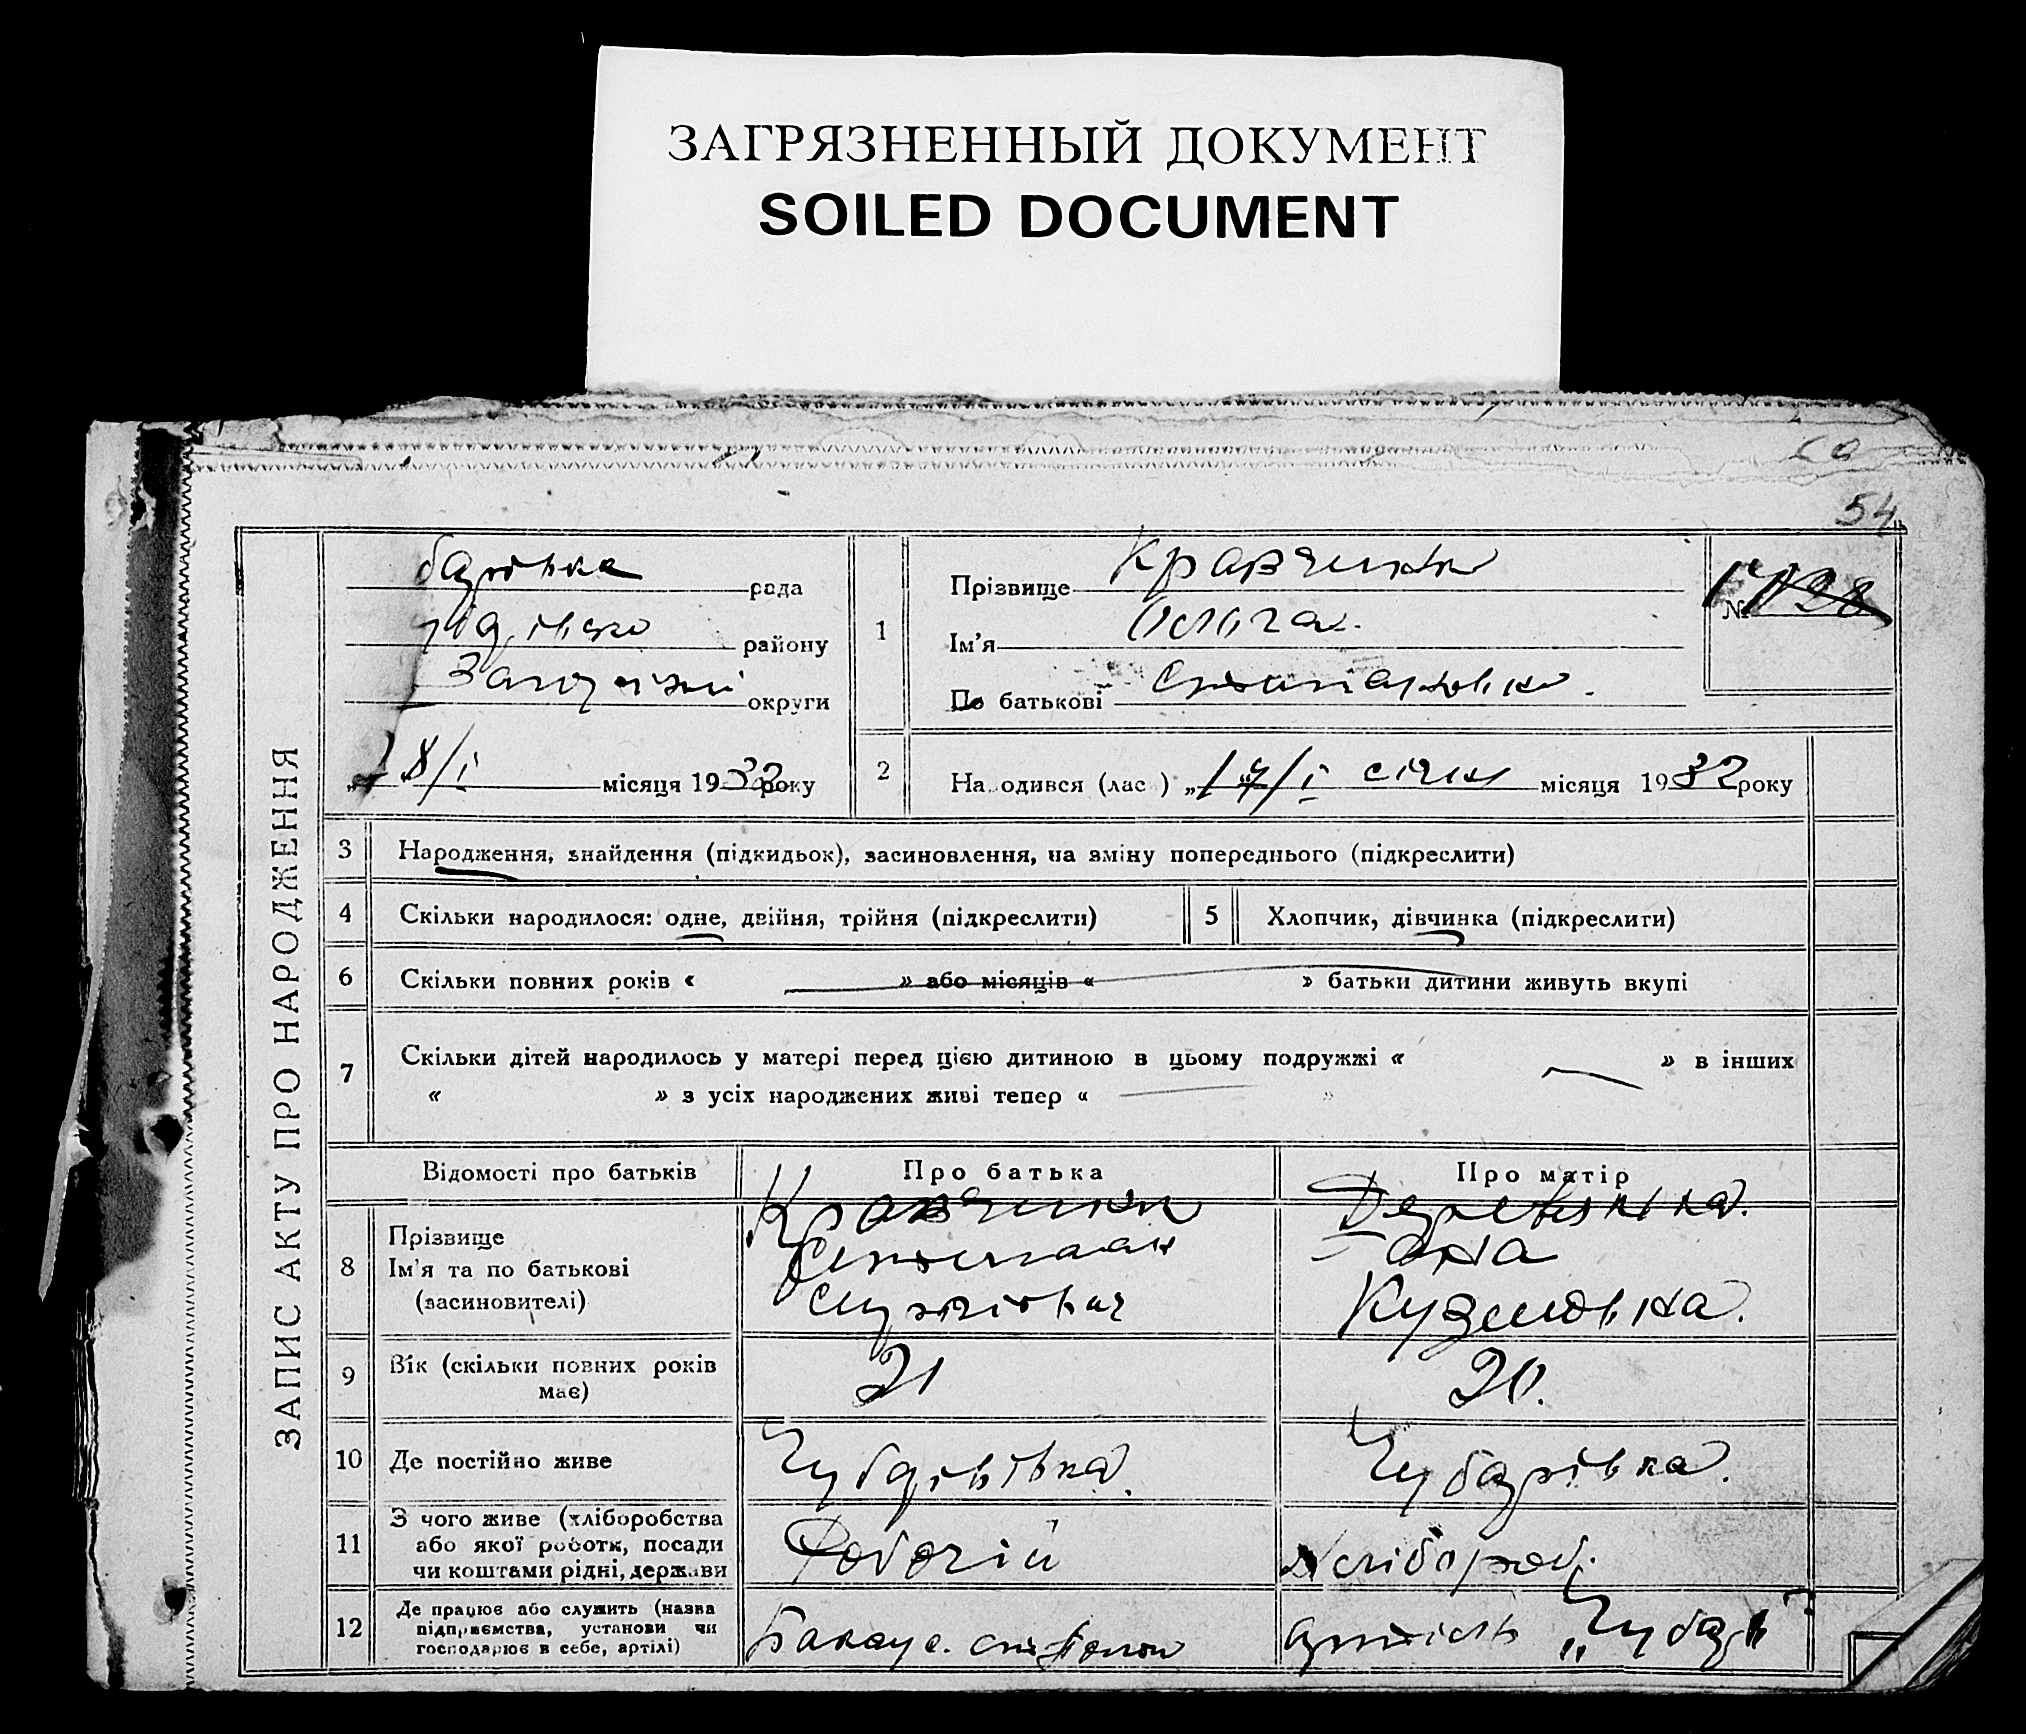 ЗАГРЯЗНЕННЫЙ ДОКУМЕНТ
SOILED DOCUMENT
54
ЗАПИС АКТУ ПРО НАРОДЖЕННЯ
рада
району
округи
18/I місяця 1932 року
1 Прізвище
Ім'я Ольга.
По батькові
№
2 На одився (лас ) „17/I січня місяця 1932 року
3 Народження, знайдення (підкидьок), засиновлення, на зміну попереднього (підкреслити)
4 Скільки народилося: одне, двійня, трійня (підкреслити)
5 Хлопчик, дівчинка (підкреслити)
6 Скільки повних років « » або місяців « » батьки дитини живуть вкупі
7 Скільки дітей народилось у матері перед цією дитиною в цьому подружжі « » в інших
« » з усіх народжених живі тепер « »
Відомості про батьків Про батька Про матір
8 Прізвище
Ім'я та по батькові
(засиновителі)
Кузмовна.
9 Вік (скільки повних років
має)
21 20.
10 Де постійно живе Чубарівка. Чубарівка.
11 З чого живе (хліборобства
або якої роботи, посади
чи коштами рідні, держави
Робочій Хлібороб.
12 Де працює або служить (назва
підприємства, установи чи
господарює в себе, артілі)
артіль „Чубар"